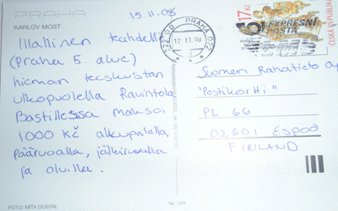 PRAHA
KARLŮV MOST
15.11.08
Illallinen kahdelle
(Praha 5. alue)
hieman keskustan
ulkopuolella Ravintola
Bastillessa maksoi
1000 Kč alkupaloilla,
pääruoalla, jälkiruoalla
ja oluilla.
FOTO: MÍTA DOSTÁL
PRAHA 022
17.11.08
17 Kč
EXPRESNÍ
POŠTA
ČESKÁ REPUBLIKA
Suomen Rahatieto oy
"Postikortti"
PL 66
02601 ESPOO
FINLAND